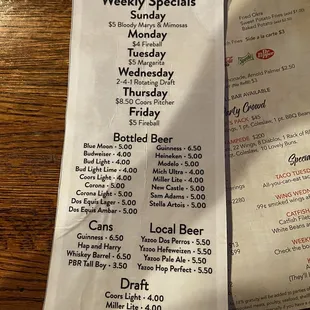 Weekly Specials
Sunday
$5 Bloody Marys & Mimosas
Monday
$4 Fireball
Tuesday
$5 Margarita
Wednesday
2-4-1 Rotating Draft
Thursday
$8.50 Coors Pitcher
Friday
$5 Fireball
Bottled Beer
Blue Moon - 5.00
Budweiser - 4.00
Bud Light - 4.00
Bud Light Lime - 4.00
Coors Light - 4.00
Corona - 5.00
Corona Light - 5.00
Dos Equis Lager - 5.00
Dos Equis Ambar - 5.00
Guinness - 6.50
Heineken - 5.00
Modelo - 5.00
Mich Ultra - 4.00
Miller Lite - 4.00
New Castle - 5.00
Sam Adams - 5.00
Stella Artois - 5.00
Cans
Guinness - 6.50
Hap and Harry
Whiskey Barrel - 6.50
PBR Tall Boy - 3.50
Local Beer
Yazoo Dos Perros - 5.50
Yazoo Hefeweizen - 5.50
Yazoo Pale Ale - 5.50
Yazoo Hop Perfect - 5.50
Draft
Coors Light - 4.00
Miller Lite - 4.00
Fried Okra
Sweet Potato Fries
Baked Potato
Side a la carte $3
Arnold Palmer $2.50
BAR AVAILABLE
Party Crowd
PACK $45
Wings, 1 pt. Coleslaw, BBQ Bea
STAMPEDE $200
22 Wings, 8 Drabloo, 1 Rack of R
Coleslaw, 10 Lovely Buns
Special
TACO TUES
All-you-can-eat tac
WING WEDNE
99¢ smoked wings
CATFISH
Catfish Filet
White Be
WEEK
Check the bo
(They'll